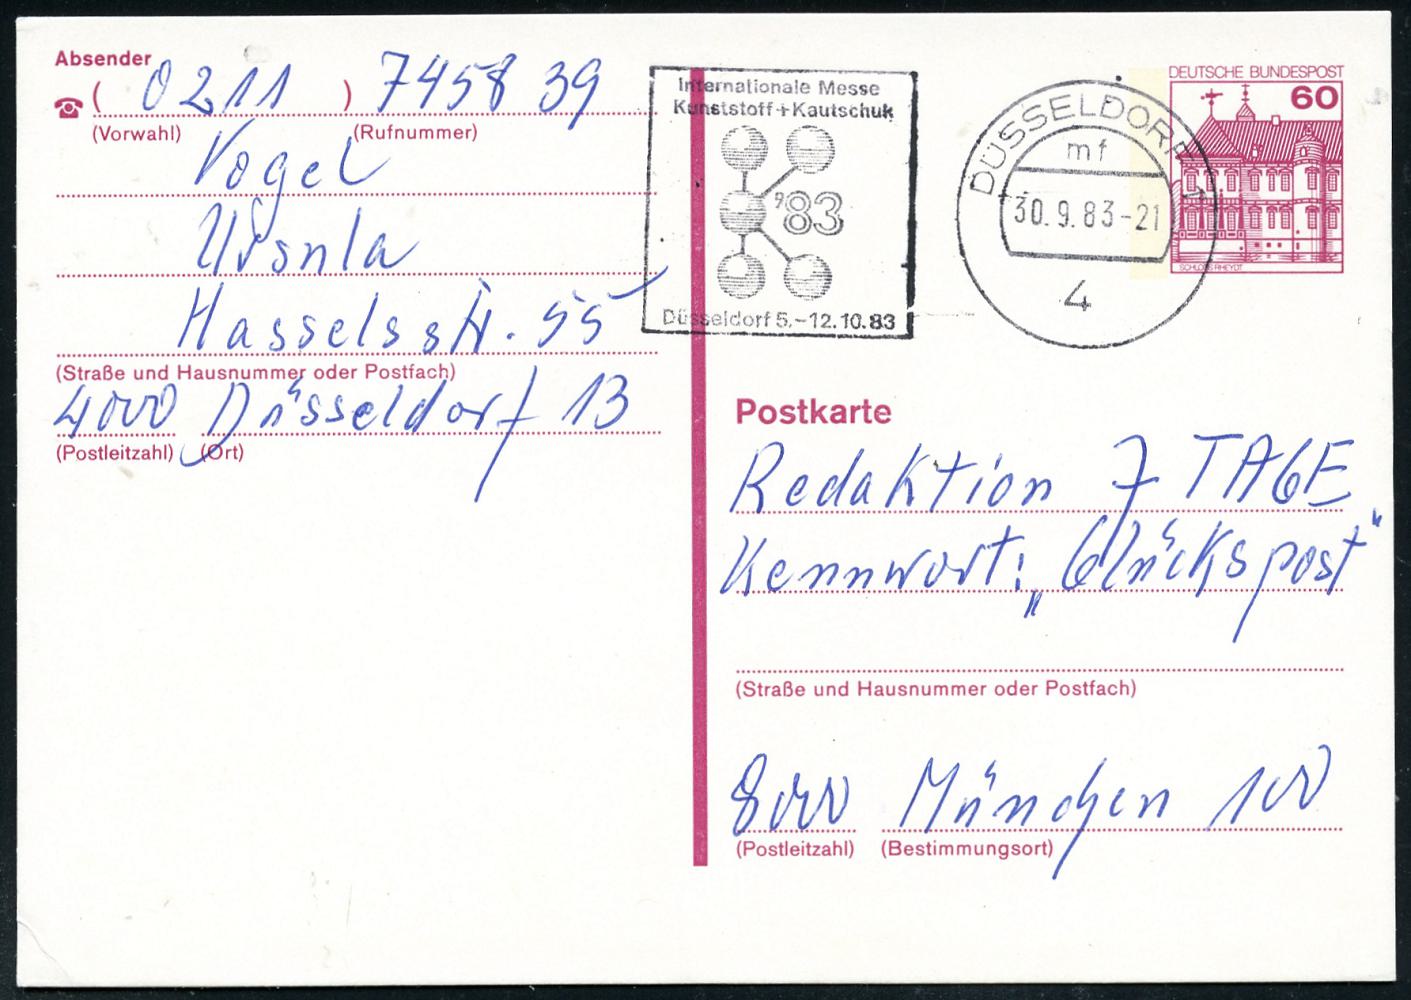 Absender
( 0211 ) 7458 39
(Vorwahl) (Rufnummer)
Vogel
Ursula
Hasselsstr. 55
(Straße und Hausnummer oder Postfach)
4000 Düsseldorf 13
(Postleitzahl) (Ort)
Internationale Messe
Kunststoff+Kautschuk
'83
Düsseldorf 5.–12.10.83
DÜSSELDORF 1
mf
30.9.83-21
4
DEUTSCHE BUNDESPOST
60
SCHLOSS RHEYDT
Postkarte
Redaktion 7 TAGE
Kennwort: „Glückspost"
(Straße und Hausnummer oder Postfach)
8000 München 100
(Postleitzahl) (Bestimmungsort)